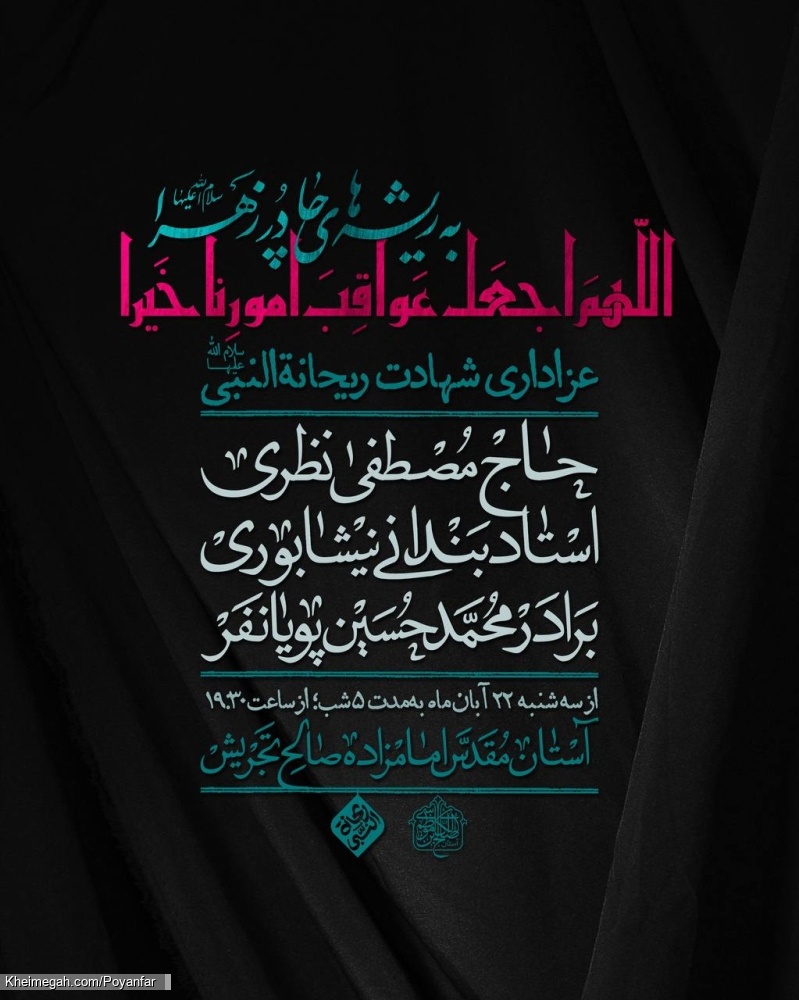 به ریشه‌های چادر زهرا سلام الله علیها
اللهم اجعل عواقِبَ امورِنا خَیرا
عزاداری شهادت ریحانة النبی سلام الله علیها
حاج مُصْطفی نظری
استاد بَندانی نیشابوری
بَرادَر محُمَّد حُسَین پویانفَر
از سه شنبه ۲۲ آبان ماه به مدت ۵ شب؛ از ساعت ۱۹:۳۰
آستان مُقدَّس امامزاده صالح تجَریش
ریحانة النبی
Kheimegah.com/Poyanfar